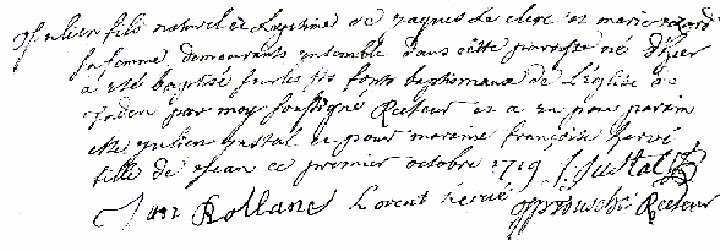 Julien fils naturel et legitime de Jaques Le clerc et marie
sa femme demeurants ensemble dans cette paroisse né d'hier
a eté baptisé sur les sts fonts baptismaux de l'église de
par moy soussigné Recteur et a eu pour parain
Julien Justal et pour maraine françoise hervé
fille de Jean ce premier octobre 1719 J. Justal
Jan Rollane Lorent hervé Recteur